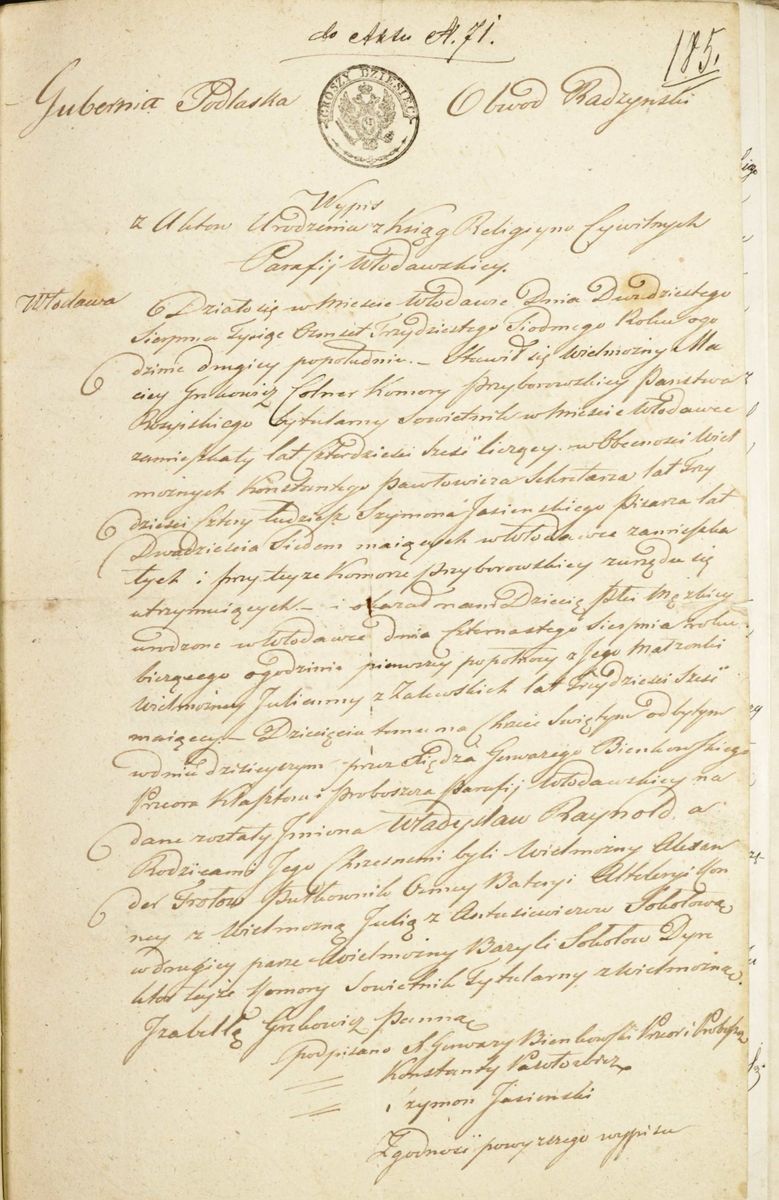 do Aktu N. 71.
185.
Gubernia Podlaska
GROSZY DZIESIĘC
Obwod Radzynski
Wypis
z Aktow Urodzenia z Xiąg Religiyno Cywilnych
Parafij Włodawskiey.
Włodawa
Działo się w Mieście Włodawce Dnia Dwudziestego
Sierpnia Tysiąc Osmset Trzydziestego Siodmego Roku o go
dzinie drugiey popołudniu. – Stawił się Wielmożny Ma
ciey Grekowicz Celner Komory Przyborowskiey Państwa
Rossyiskiego tytularny Sowietnik w Mieście Włodawce
zamieszkały lat Czterdzieści Sześć liczący w Obecności Wiel
możnych Konstantego Pawłowicza Sekretarza lat Trzy
dzieści cztery tudziesz Szymona Jasienskiego Pisarza lat
Dwadzieścia Siedem maiących w Włodawce zamieszka
łych i przy teyże Komorze Przyborowskiey z urzędu się
utrzymuiących. – i okazał nam Dziecię płci Męzkiey
urodzone w Włodawce dnia Czternastego Sierpnia roku
bieżącego o godzinie pierwszey popołnocy z Jego Małżonki
Wielmożney Julianny z Zalewskich lat Trzydzieści Sześć
maiącey. – Dziecięciu temu na Chrzcie Swiętym odbytym
w dniu dzisieyszym przez Xiędza Gerwazego Bienkowskiego
Przeora Klasztoru i Proboszcza Parafij Włodawskiey na
dane zostały Jmiona Władysław Raynold, a
Rodzicami Jego Chrzesnemi byli Wielmożny Alexan
der Frołow Pułkownik Osmey Bateryi Artyleryi Kon
ney z Wielmożną Julią z Antusiewiczow Sokołową
w drugiey parze Wielmożny Bazyli Sokołow Dyre
ktor teyże Komory Sowietnik Tytularny z Wielmożną
Izabellą Grekowicz Panną
Podpisano X Gerwazy Bienkowski Przeor i Proboszcz
Konstanty Pawłowicz
Szymon Jasienski
Zgodność powyższego wypisu